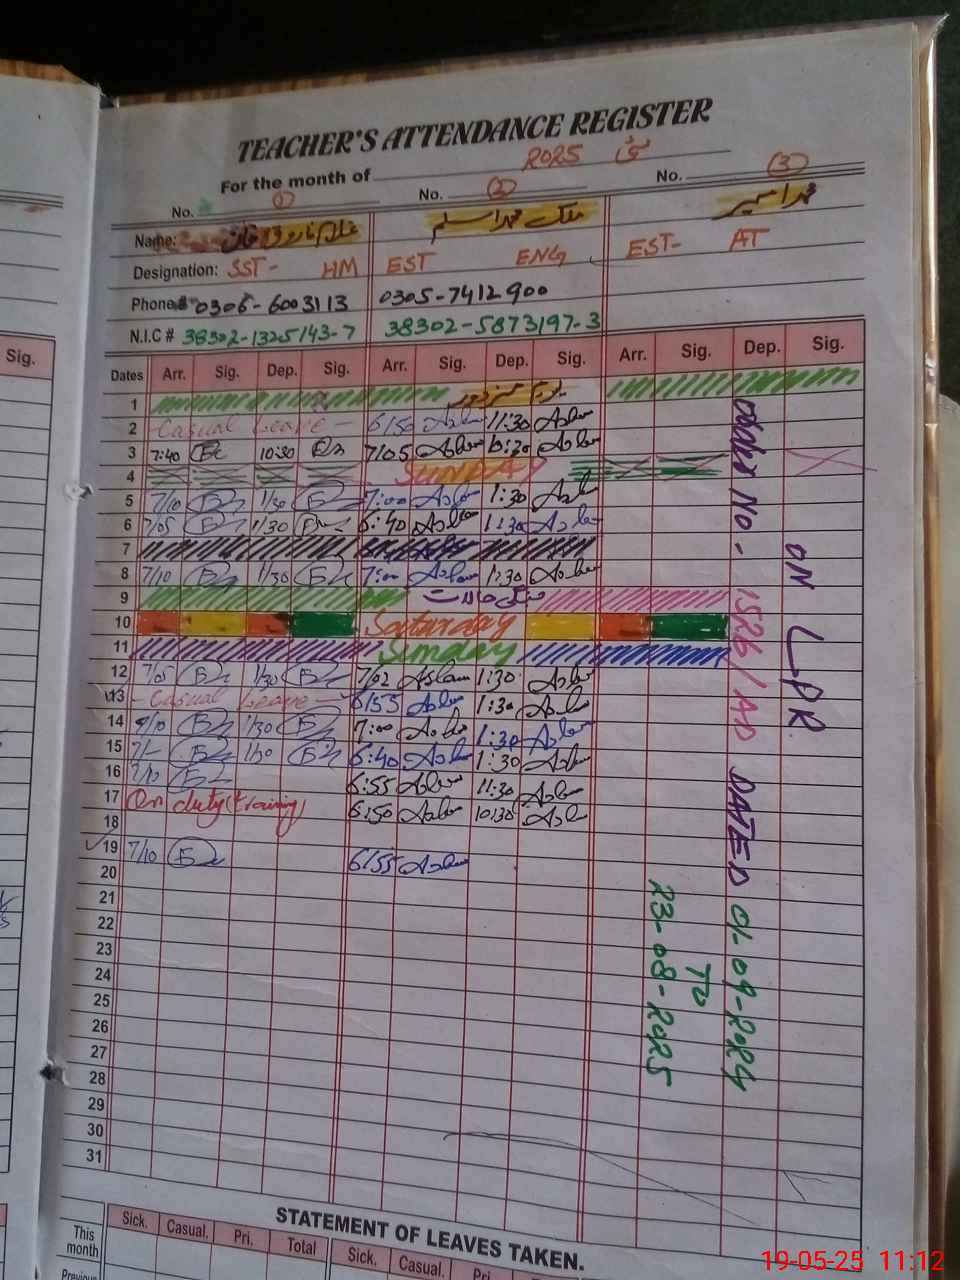 TEACHER'S ATTENDANCE REGISTER
For the month of 2025 مئی
No. (1) No. (2) No. (3)
Name: غلام فاروق خان ملک محمد اسلم
Designation: SST- HM EST ENG EST- AT
Phone# 0306-6003113 0305-7412900
N.I.C # 38302-1325143-7 38302-5873197-3
Sig.
Dates Arr. Sig. Dep. Sig. Arr. Sig. Dep. Sig. Arr. Sig. Dep. Sig.
1
2 Casual Leave - 6/50 Aslam 11:30 Aslam
3 7:40 10:30 7/05 Aslam Aslam
4 SUNDAY
5 7/10 1/30 7:00 Aslam 1:30 Aslam
6 7/05 1/30 6:40 Aslam 1:30 Aslam
7
8 7/10 1/30 7:00 Aslam 1:30 Aslam
9
10 Saturday
11 Sunday
12 7/05 1/30 7/02 Aslam 1:30 Aslam
13 - Casual Leave - 6/55 Aslam 1:30 Aslam
14 1/30 7:00 Aslam 1:30 Aslam
15 7/- 1/30 6:40 Aslam 1:30 Aslam
16 7/10 6:55 Aslam 11:30 Aslam
17 On duty (training) 6:50 Aslam 10:30 Asl
18
19 7/10 6/55 Aslam
20
21
22
23
24
25
26
27
28
29
30
31
ORDER NO- 1526/AD DATED 01-09-2024
TO
23-08-2025
ON LPR
STATEMENT OF LEAVES TAKEN.
Sick. Casual. Pri. Total Sick. Casual. Pri.
This month
Previous
19-05-25 11:12